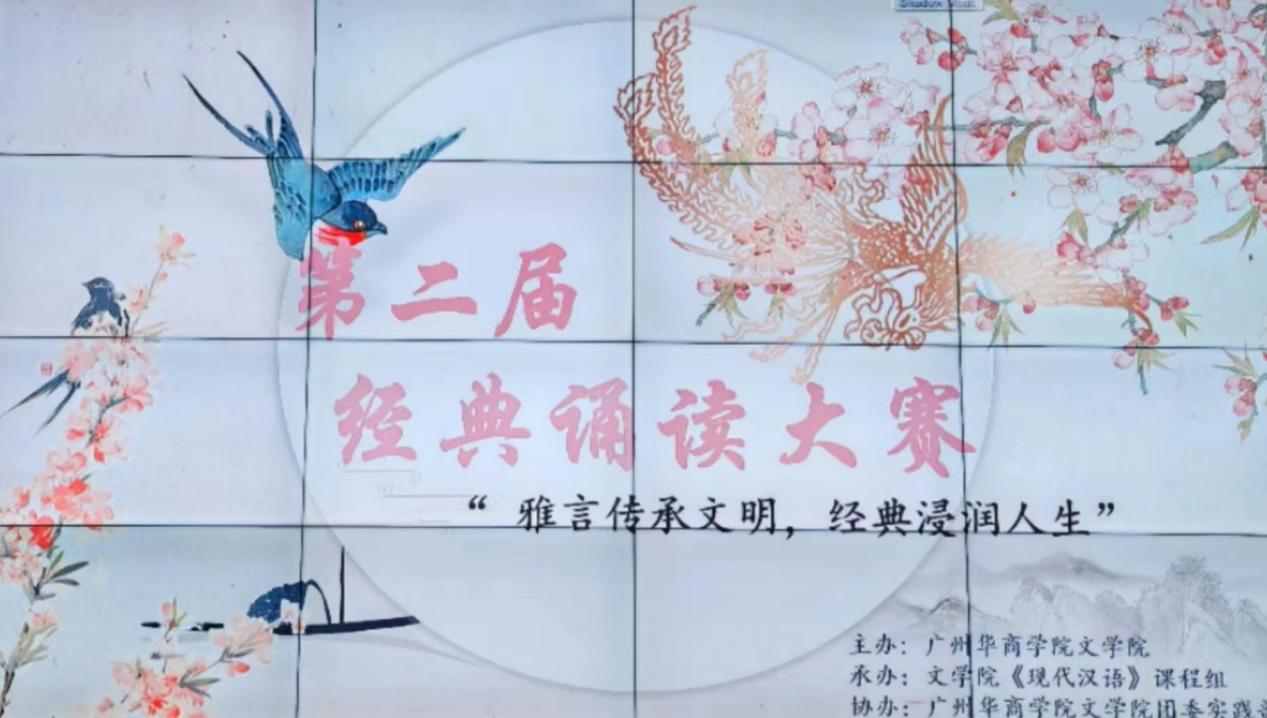 Shadow Mode
第二届
经典诵读大赛
“雅言传承文明，经典浸润人生”
主办：广州华商学院文学院
承办：文学院《现代汉语》课程组
协办：广州华商学院文学院团委实践